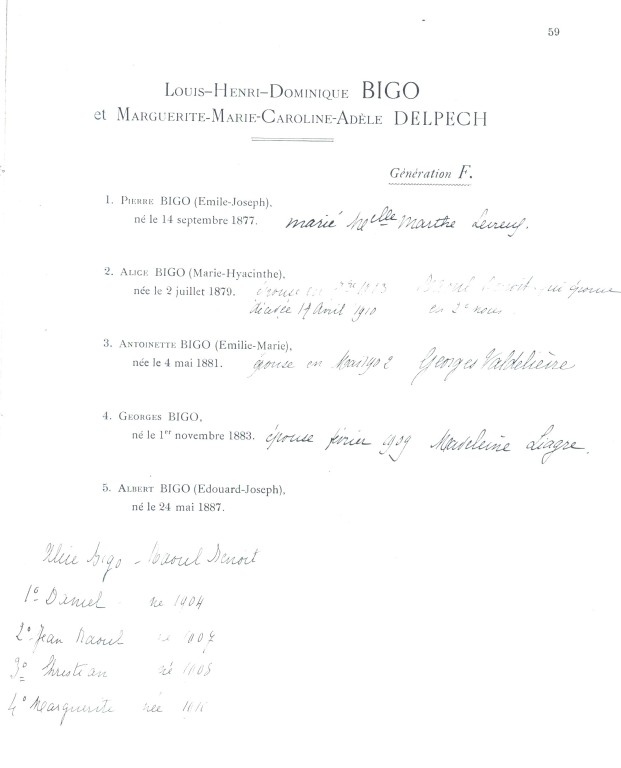 59
Louis-Henri-Dominique BIGO
et Marguerite-Marie-Caroline-Adèle DELPECH
Génération F.
1. Pierre BIGO (Emile-Joseph),
né le 14 septembre 1877. marié Melle Marthe
2. Alice BIGO (Marie-Hyacinthe),
née le 2 juillet 1879. épouse en Raoul Benoit qui épouse
décédée 17 Avril 1910 en 2e
3. Antoinette BIGO (Emilie-Marie),
née le 4 mai 1881. épouse en Mai 1902 Georges Valdelièvre
4. Georges BIGO,
né le 1er novembre 1883. épouse février 1909 Madeleine Liagre.
5. Albert BIGO (Edouard-Joseph),
né le 24 mai 1887.
Alice Bigo - Raoul Benoit
1º Daniel né 1904
2º Jean Raoul né 1907
3º Christian né
4º Marguerite née